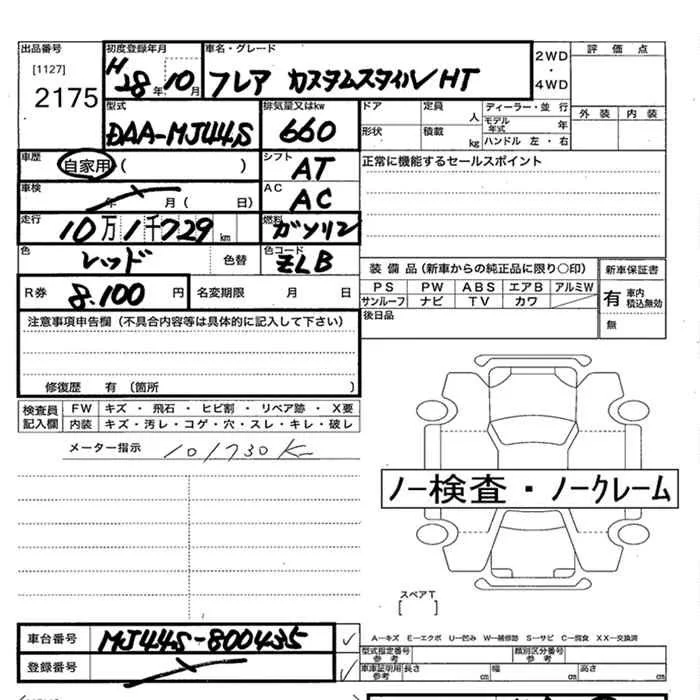 出品番号 初度登録年月 車名・グレード 2WD ・ 4WD 評価点
[1127] H
2175 28年10月 フレア カスタムスタイル/HT
型式 排気量又はkw ドア 定員 人 ディーラー・並 行 外装 内装
DAA-MJ44S 660 形状 積載 kg モデル年式 年
ハンドル 左・右
車歴 自家用 ( ) シフト AT 正常に機能するセールスポイント
車検 年 月 ( 日) AC AC
走行 10万1千729km 燃料 ガソリン
色 レッド 色替 色コード ZLB
装備品(新車からの純正品に限り○印) 新車保証書
R券 8.100円 名変期限 月 日 PS PW ABS エアB アルミW 有 車内積込無効
サンルーフ ナビ TV カワ
後日品 無
注意事項申告欄(不具合内容等は具体的に記入して下さい)
修復歴 有 (箇所 )
検査員記入欄 FW キズ・飛石・ヒビ割・リペア跡・X要
内装 キズ・汚レ・コゲ・穴・スレ・キレ・破レ
メーター指示 101730 K
ノー検査・ノークレーム
スペアT
[ ]
車台番号 MJ44S-800435 ✓ A―キズ E―エクボ U―凹み W―補修跡 S―サビ C―腐食 XX―交換済
型式指定番号 参考 類別区分番号 参考
登録番号 ✓ 車庫証明用 参考 長さ cm 幅 cm 高さ cm